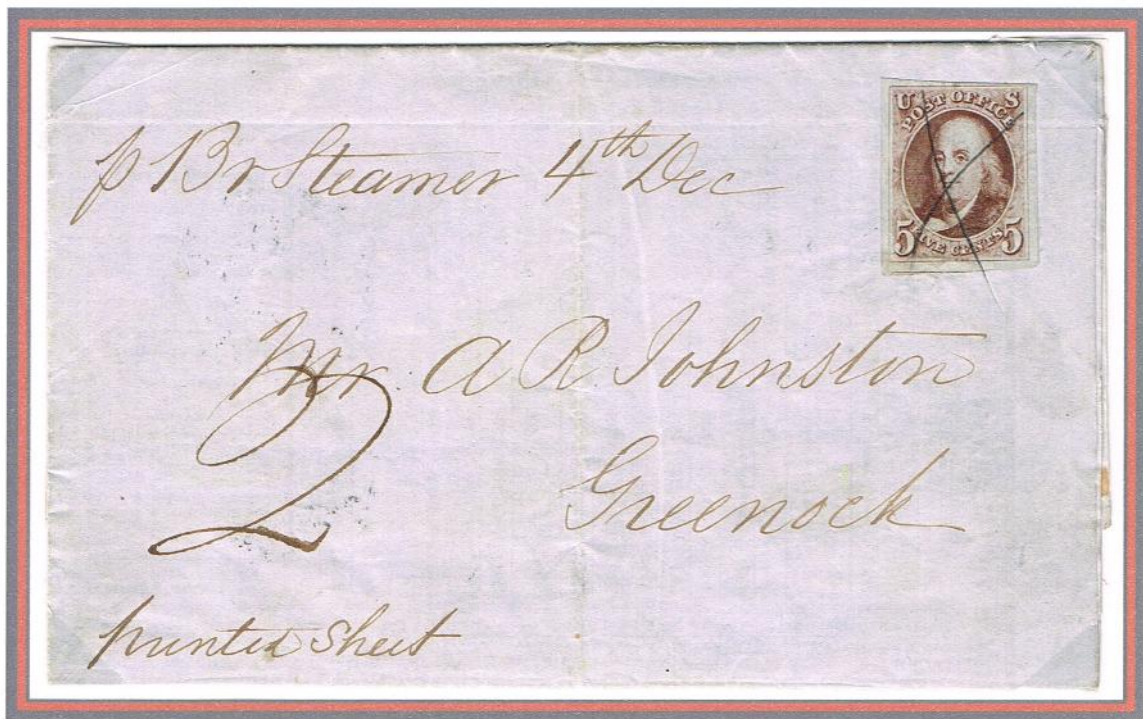 p Br Steamer 4th Dec
U S
POST OFFICE
5 FIVE CENTS 5
Mr A R Johnston
2
Greenock
printed sheet